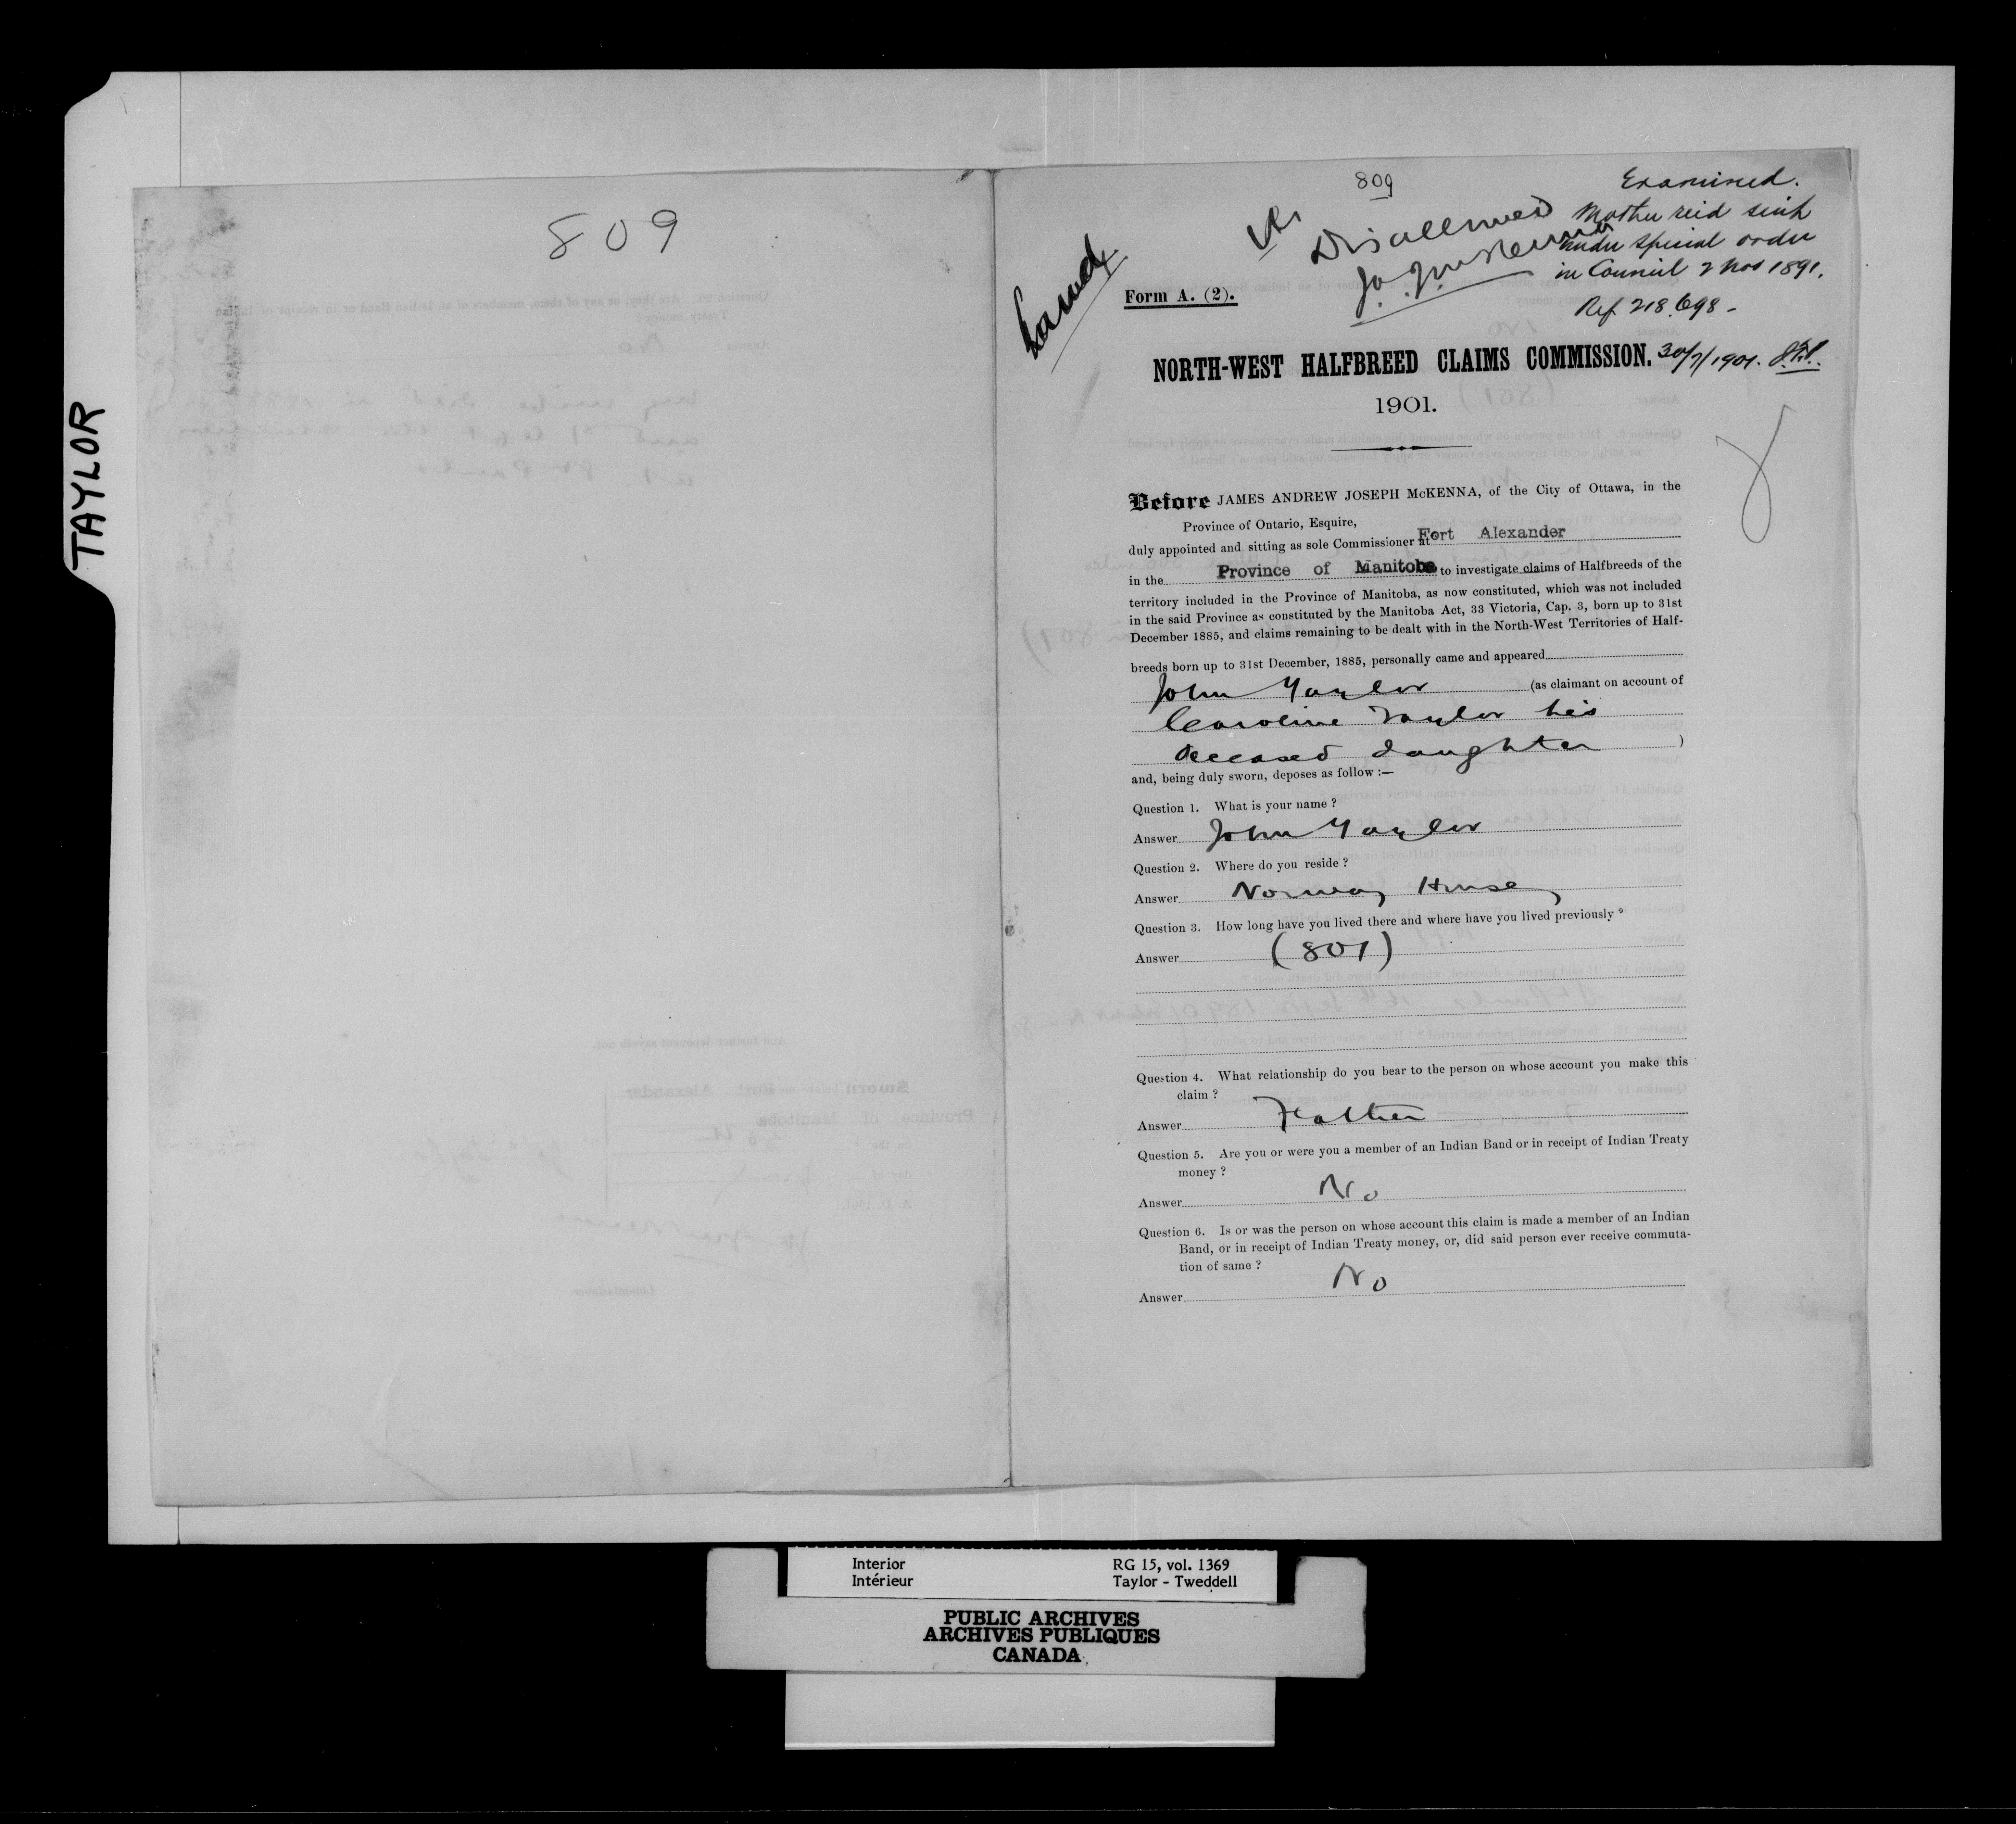 TAYLOR
809
809
Disallowed
Examined.
Mother recd scrip
under special order
in Council 2 Nov 1891.
Ref. 218.698 -
30/7/1901.
Form A. (2).
NORTH-WEST HALFBREED CLAIMS COMMISSION.
1901.
Before JAMES ANDREW JOSEPH McKENNA, of the City of Ottawa, in the
Province of Ontario, Esquire,
duly appointed and sitting as sole Commissioner at Fort Alexander
in the Province of Manitoba to investigate claims of Halfbreeds of the
territory included in the Province of Manitoba, as now constituted, which was not included
in the said Province as constituted by the Manitoba Act, 33 Victoria, Cap. 3, born up to 31st
December 1885, and claims remaining to be dealt with in the North-West Territories of Half-
breeds born up to 31st December, 1885, personally came and appeared
John Taylor (as claimant on account of
Caroline Taylor his
deceased daughter )
and, being duly sworn, deposes as follow :—
Question 1. What is your name ?
Answer John Taylor
Question 2. Where do you reside ?
Answer Norway House
Question 3. How long have you lived there and where have you lived previously ?
Answer (801)
Question 4. What relationship do you bear to the person on whose account you make this
claim ?
Answer Father
Question 5. Are you or were you a member of an Indian Band or in receipt of Indian Treaty
money ?
Answer No
Question 6. Is or was the person on whose account this claim is made a member of an Indian
Band, or in receipt of Indian Treaty money, or, did said person ever receive commuta-
tion of same ?
Answer No
Interior RG 15, vol. 1369
Intérieur Taylor - Tweddell
PUBLIC ARCHIVES
ARCHIVES PUBLIQUES
CANADA